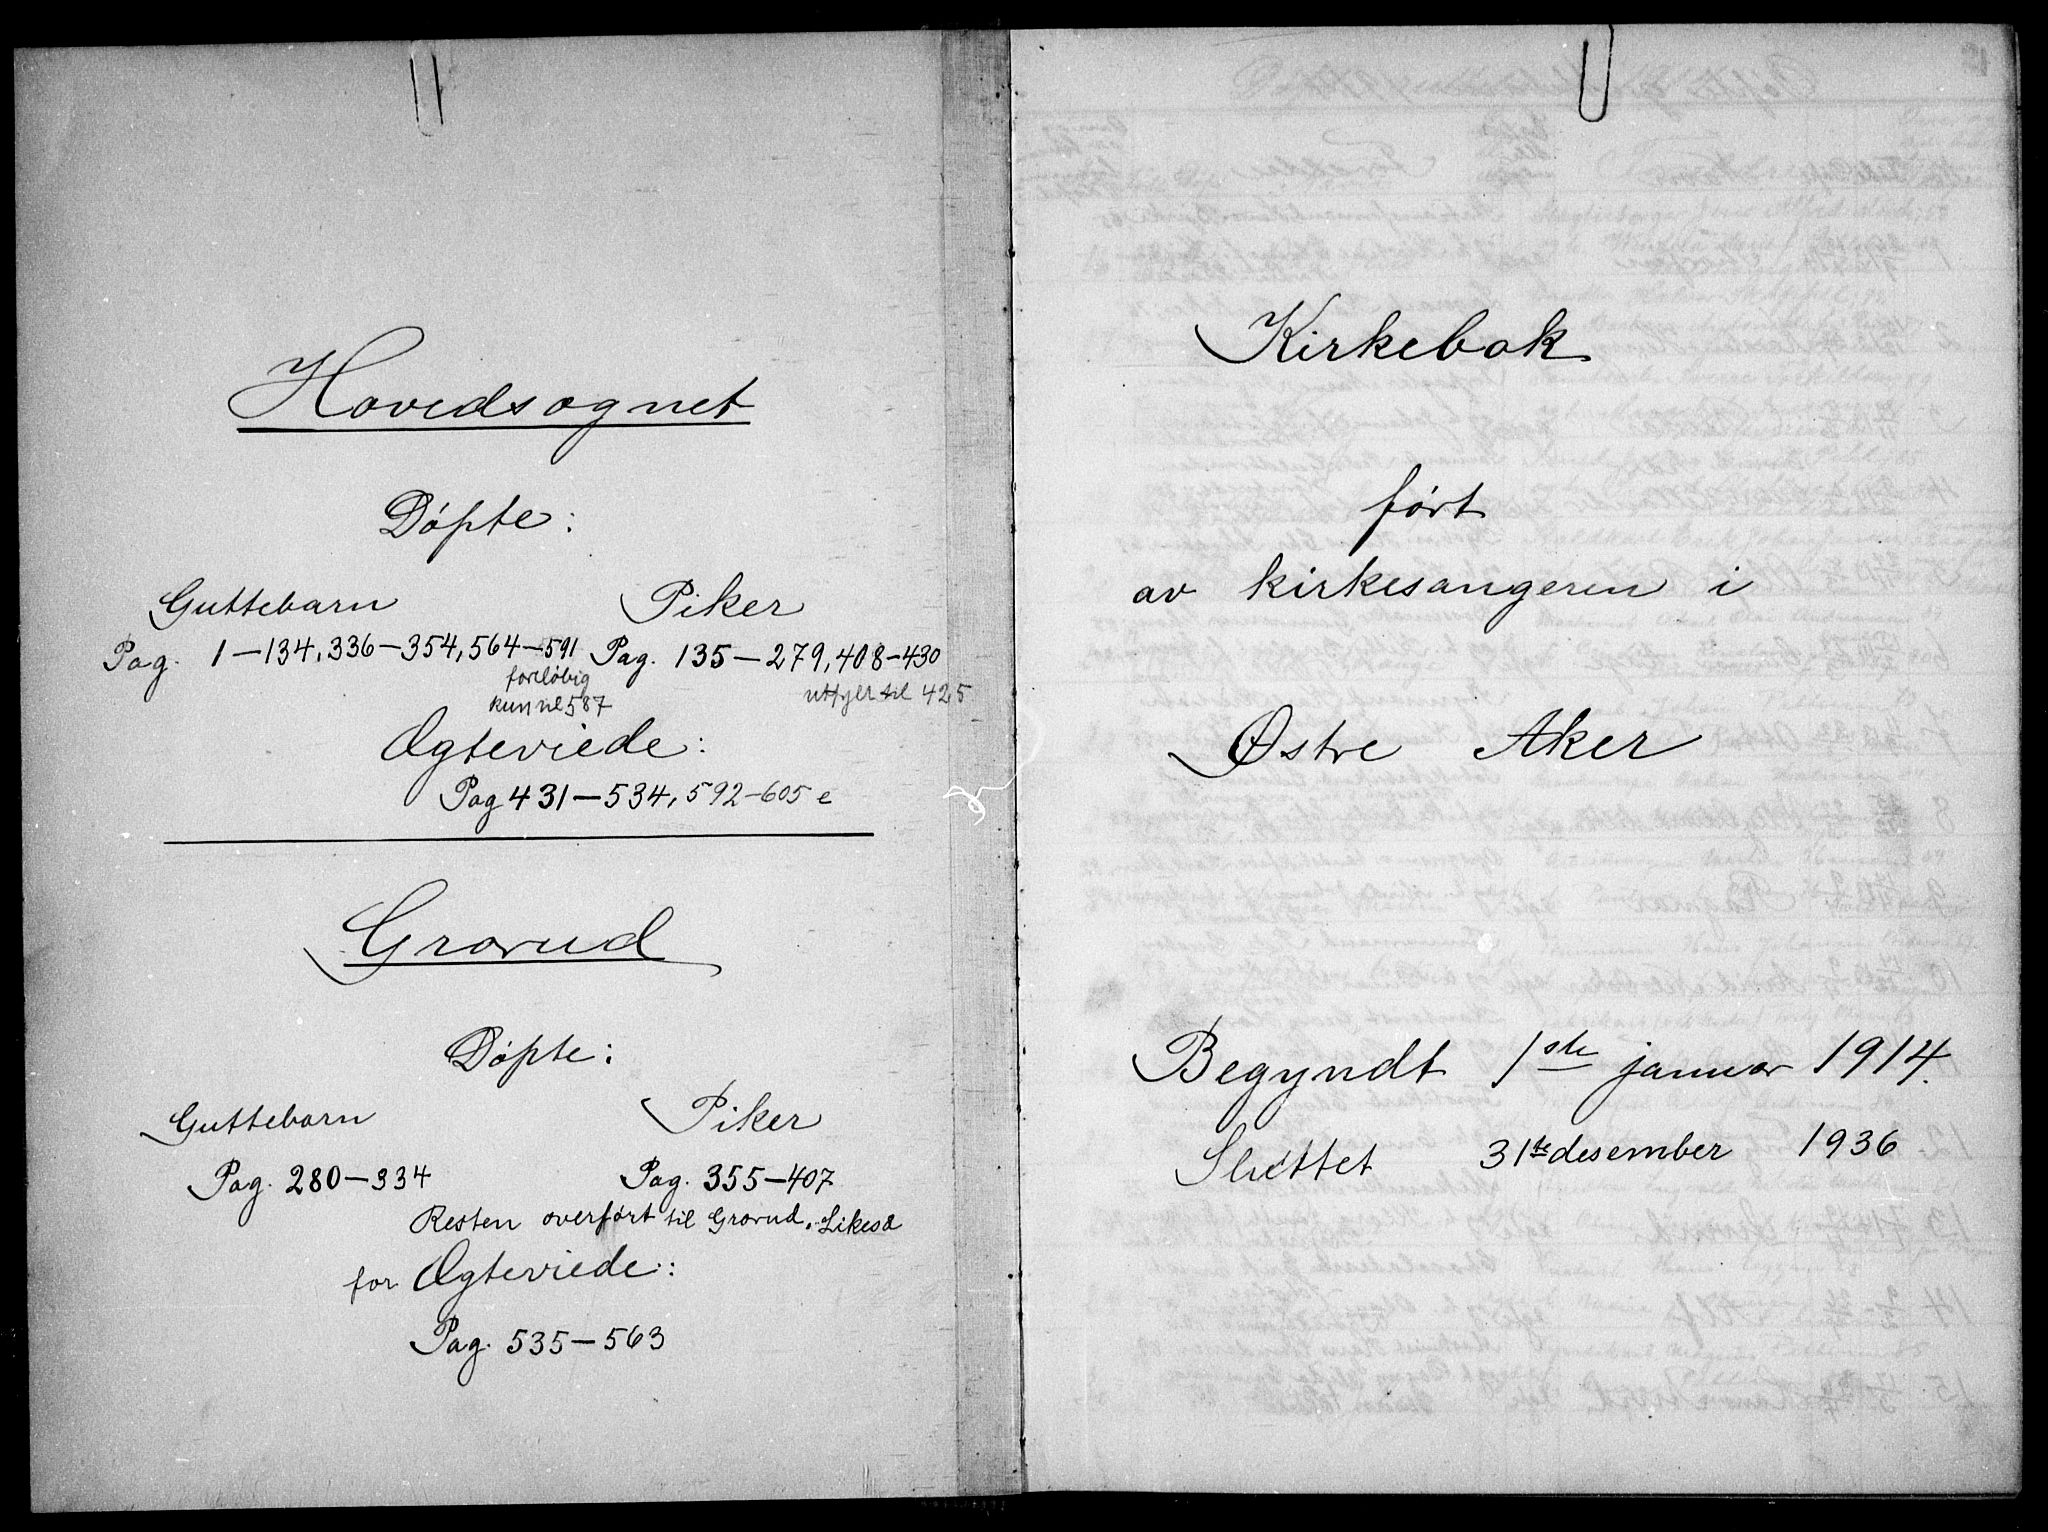 Hovedsognet
Döpte:
Guttebarn Piker
Pag. 1—134, 336—354, 564—591 Pag. 135—279, 408—430
foreløbig
kun til 587
utfylt til 425
Ægteviede:
Pag 431—534, 592—605 e
Grorud
Döpte:
Guttebarn Piker
Pag. 280—334 Pag. 355—407
Resten overført til Grorud. Likeså
for Ægteviede:
Pag. 535—563
Kirkebok
ført
av kirkesangeren i
Østre Aker
Begyndt 1ste januar 1914.
Sluttet 31te desember 1936